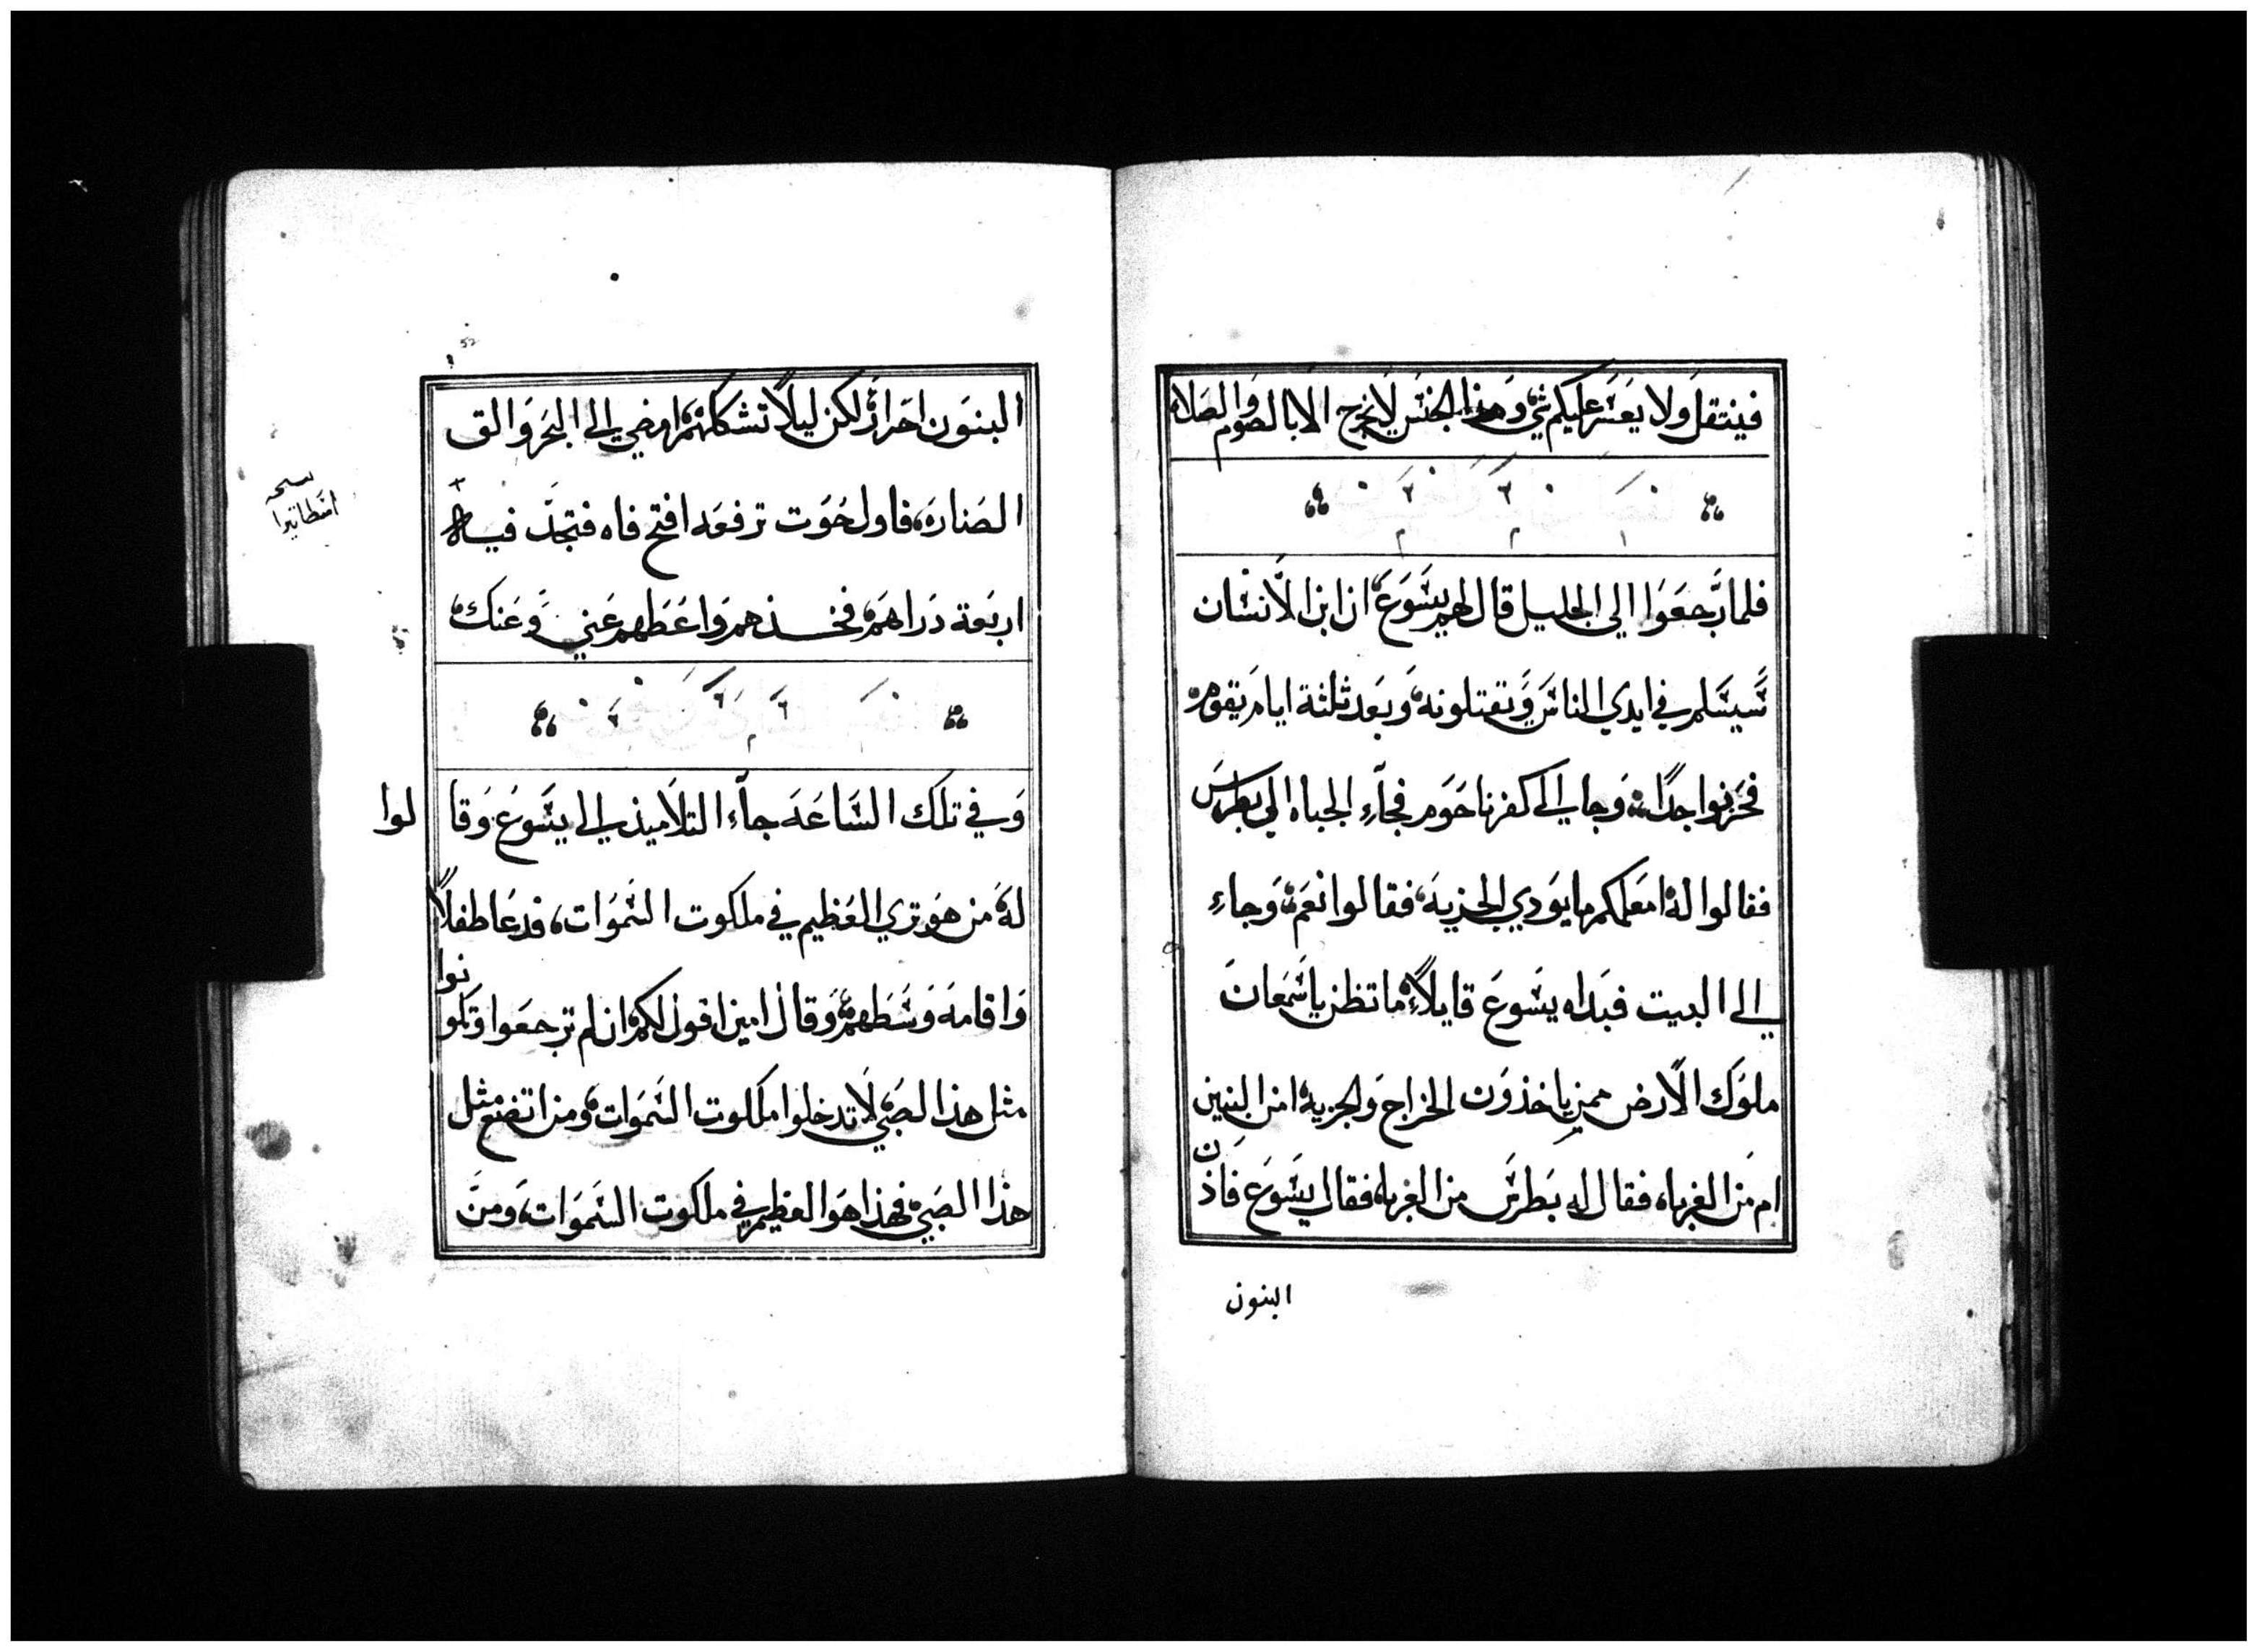 فينتقل ولا يعسر عليكم شي وهذا الجنس لا يخرج الا بالصوم والصلاه
فلما رجعوا الي الجليل قال لهم يسوع ان ابن الانسان
سيسلم في ايدي الناس وتقتلونه وبعد ثلثة ايام يقوم
فحزنوا جدا وجا الى كفرناحوم فجاء الجباه الي بطرس
فقالوا له امعلمكم ما يودي الجزيه فقالوا نعم وجاء
الى البيت فبداه يسوع قايلا ما تظن يا سمعان
ملوك الارض ممن ياخذون الخراج والجزيه امن البنين
ام من الغرباه فقال له بطرس من الغرباه فقال يسوع فاذن
البنون
البنون احرار لكن ليلا تشككهم امضي الى البحر والق
الصناره فاول حوت ترفعه افتح فاه فتجد فيه
اربعة دراهم فخذهم واعطهم عني وعنك
وفي تلك الساعه جاء التلاميذ الى يسوع وقالوا
له من هو تري العظيم في ملكوت السموات فدعا طفلا
واقامه وسطهم وقال امين اقول لكم ان لم ترجعوا وتكونوا
مثل هذا الصبي لا تدخلوا ملكوت السموات ومن اتضع مثل
هذا الصبي فهذا هو العظيم في ملكوت السموات ومن